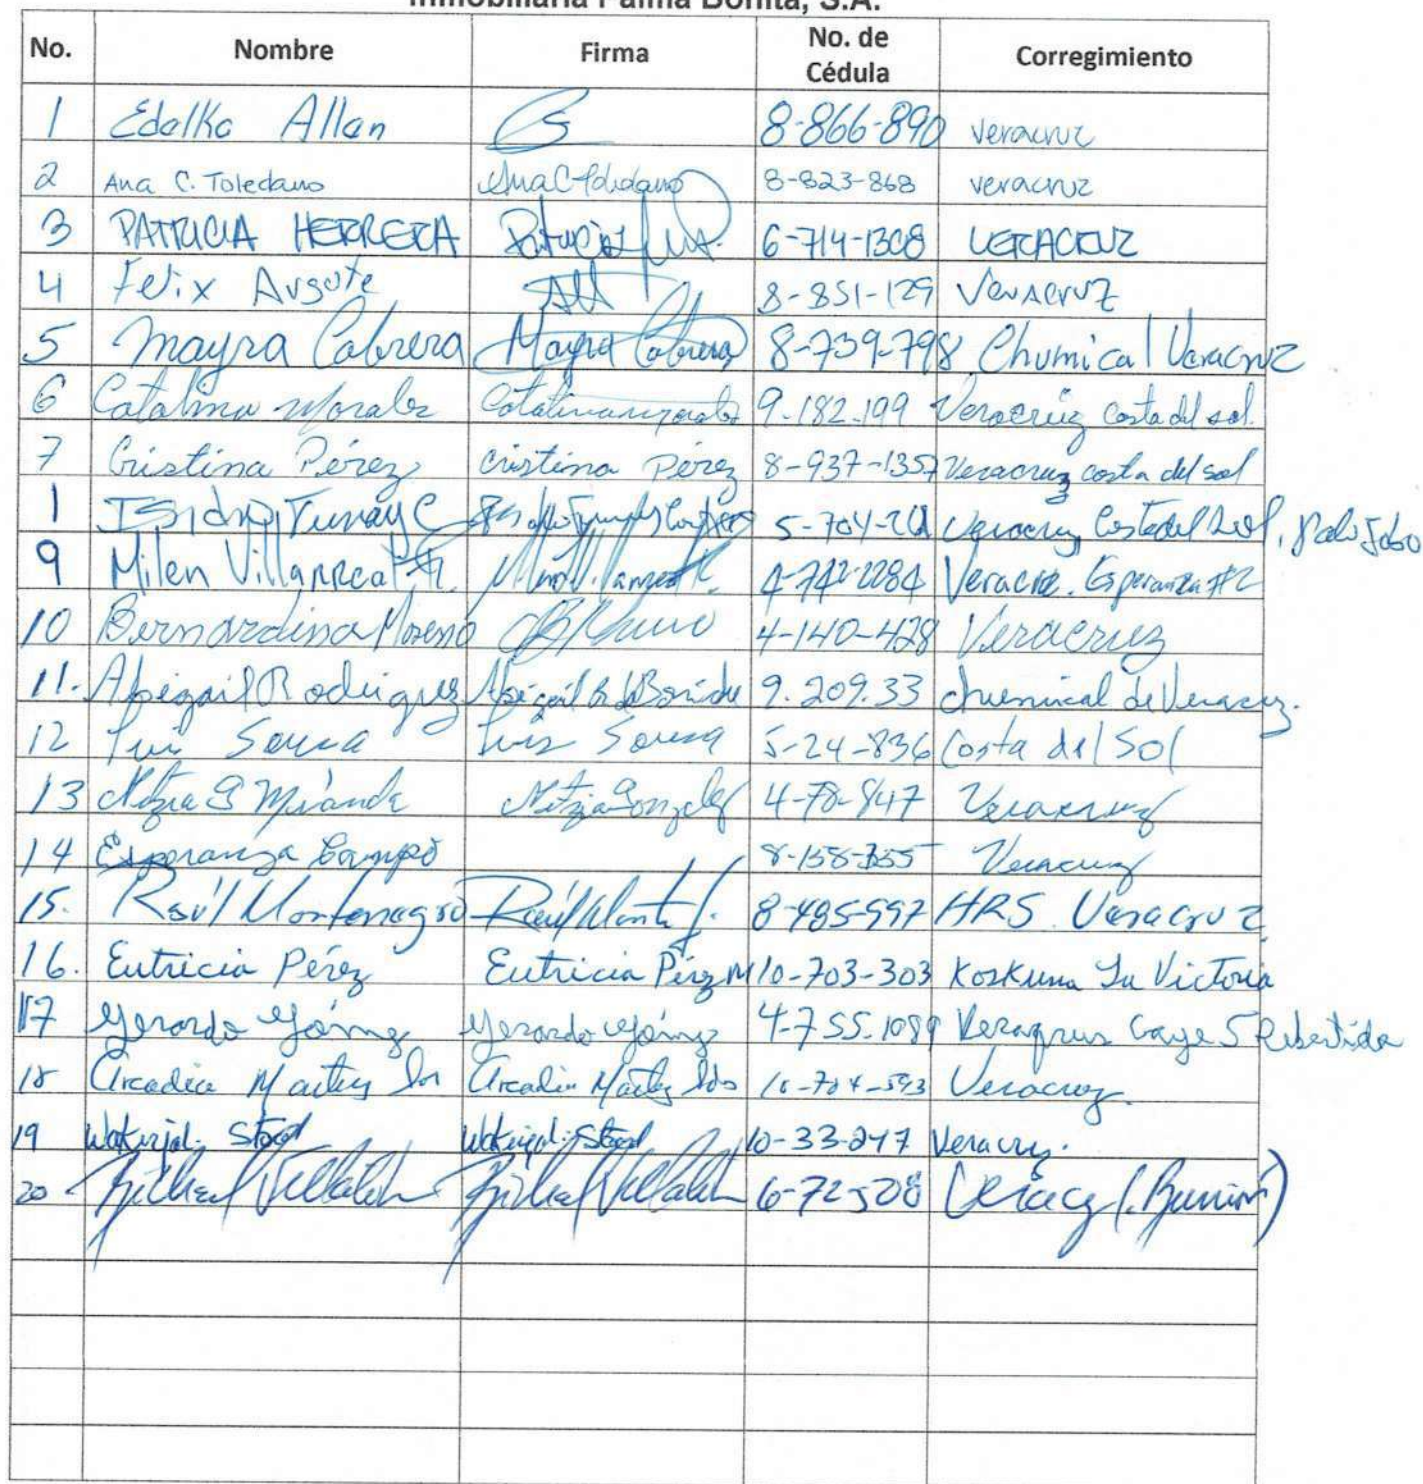 Inmobiliaria Palma Bonita, S.A.
No. Nombre Firma No. de Cédula Corregimiento
1 Edelka Allan 8-866-890 veracruz
2 Ana C. Toledano Ana C Toledano 8-823-868 veracruz
3 PATRICIA HERRERA Patricia 6-714-1308 VERACRUZ
4 Felix Argote 8-851-129 Veracruz
5 Mayra Cabrera Mayra Cabrera 8-739-798 Chumical Veracruz
6 Catalina Morales Catalina morales 9.182.199 Veracruz costa del sol.
7 Cristina Pérez cristina Pérez 8-937-1357 Veracruz costa del sol
1 Isidro Tunay C 5-704- Veracruz Costa del Sol, Palo Jobo
9 Milen Villarreal 4-742-2284 Veracruz. Esperanza #2
10 Bernardina Moreno 4-140-428 Veracruz
11. Abigail Rodriguez Abigail R de 9.209.33 chumical de Veracruz.
12 Luis Sousa Luis Sousa 5-24-836 Costa del Sol
13 Nitzia G Miranda Nitzia Gonzalez 4-78-847 Veracruz
14 Esperanza Campo 8-158- Veracruz
15. Raúl Montenegro Raúl 8-485-997 HRS Veracruz
16. Eutricia Pérez Eutricia Pérez M 10-703-303 Koskuna La Victoria
17 Gerardo Gómez Gerardo Gómez 4-755.1089 Veraqrus Caye 5 Rebertida
18 Arcadia 10-704-593 Veracruz.
19 10-33-247 Veracruz.
20 6-72-508